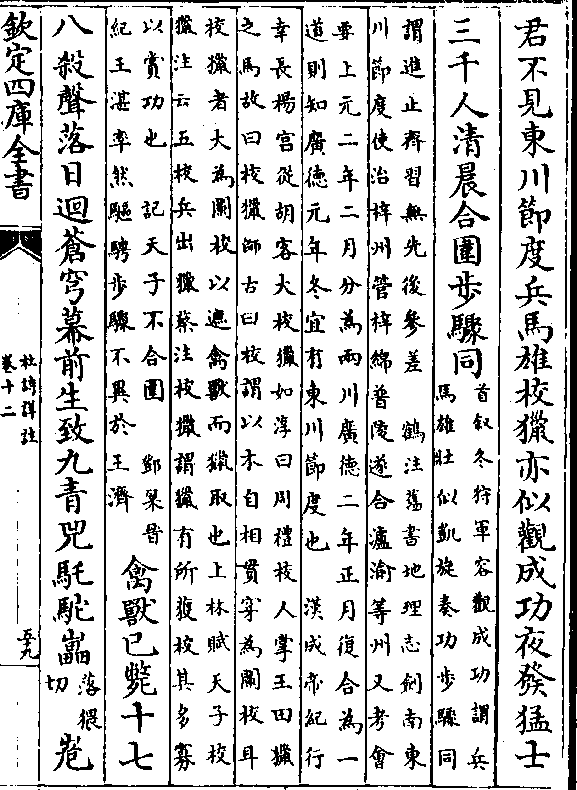 君不見東川節度兵馬雄校獵亦似觀成功夜發猛士
三千人清晨合圍步驟同
首叙冬狩軍容觀成功謂兵
馬雄壯似凱旋奏功步驟同
謂進止齊習無先後參差　鶴注舊書地理志劍南東
川節度使治梓州管梓綿普陵遂合瀘渝等州又考會
要上元二年二月分為兩川廣德二年正月復合為一
道則知廣德元年冬宜有東川節度也　漢成帝紀行
幸長楊宮從胡客大校獵如淳曰周禮校人掌王田獵
之馬故曰校獵師古曰校謂以木自相貫穿為闌校耳
校獵者大為闌校以遮禽獸而獵取也上林賦天子校
獵注云五校兵出獵蔡注校獵謂獵有所獲校其多寡
以賞功也　記天子不合圍　鄧粲晉
紀王湛率然驅騁步驟不異於王濟
禽獸已斃十七
八殺聲落日迴蒼穹幕前生致九青兕馲駝㟴
落猥
切
㞮
欽定四庫全書
杜詩詳註
卷十二
至九